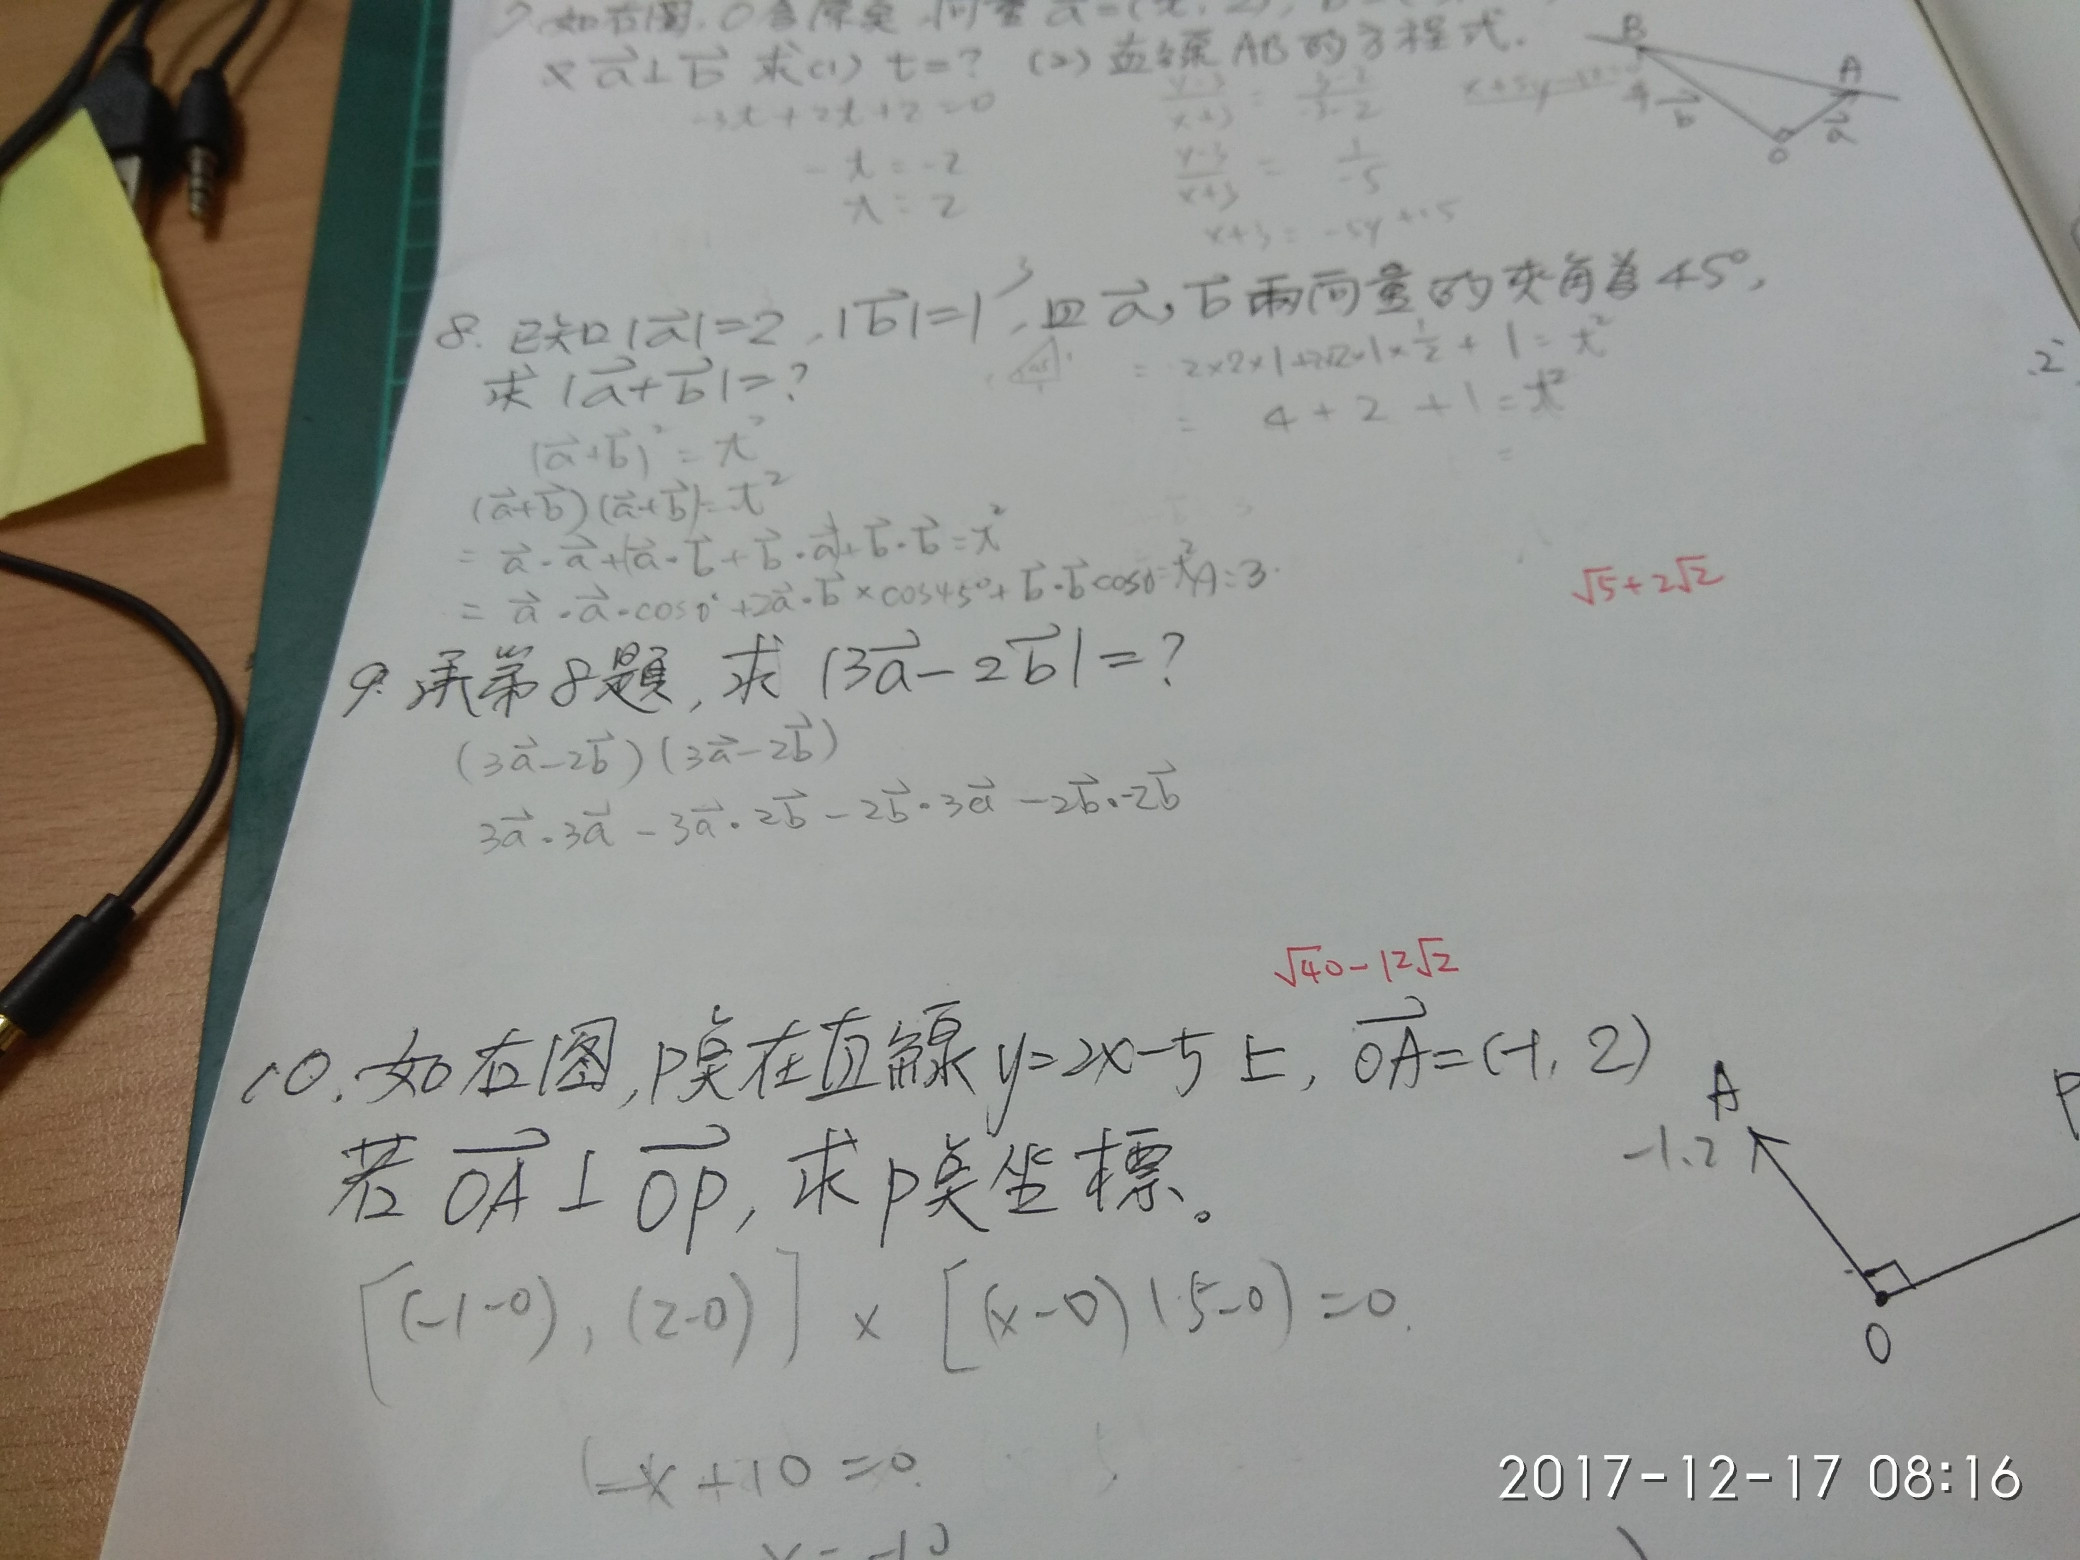 7. 如右圖, O為原點, 向量 a⃗=(t, 2),
× a⃗⊥b⃗ 求(1) t=? (2) 直線AB的方程式.
-3t+2t+2=0
-t=-2
t=2
(y-3)/(x+3) =
(y-3)/(x+3) = 1/-5
x+3=-5y+15
B
A
b⃗
a⃗
O
8. 已知|a⃗|=2, |b⃗|=1, 且a⃗, b⃗兩向量的夾角為45°,
求|a⃗+b⃗|=?
(a⃗+b⃗)²=t²
(a⃗+b⃗)(a⃗+b⃗)=t²
= a⃗·a⃗+a⃗·b⃗+b⃗·a⃗+b⃗·b⃗=t²
= a⃗·a⃗·cos0°+2a⃗·b⃗×cos45°+b⃗·b⃗cos0=t² A:3
= 4+2+1=t²
√5+2√2
9. 承第8題, 求|3a⃗-2b⃗|=?
(3a⃗-2b⃗)(3a⃗-2b⃗)
3a⃗·3a⃗-3a⃗·2b⃗-2b⃗·3a⃗-2b⃗·-2b⃗
√40-12√2
10. 如右圖, P點在直線y=2x-5上, OA⃗=(-1, 2)
若OA⃗⊥OP⃗, 求P點坐標。
A
-1.2
P
O
[(-1-0), (2-0)] × [(x-0)(5-0)=0.
-x+10=0
x=-10
2017-12-17 08:16